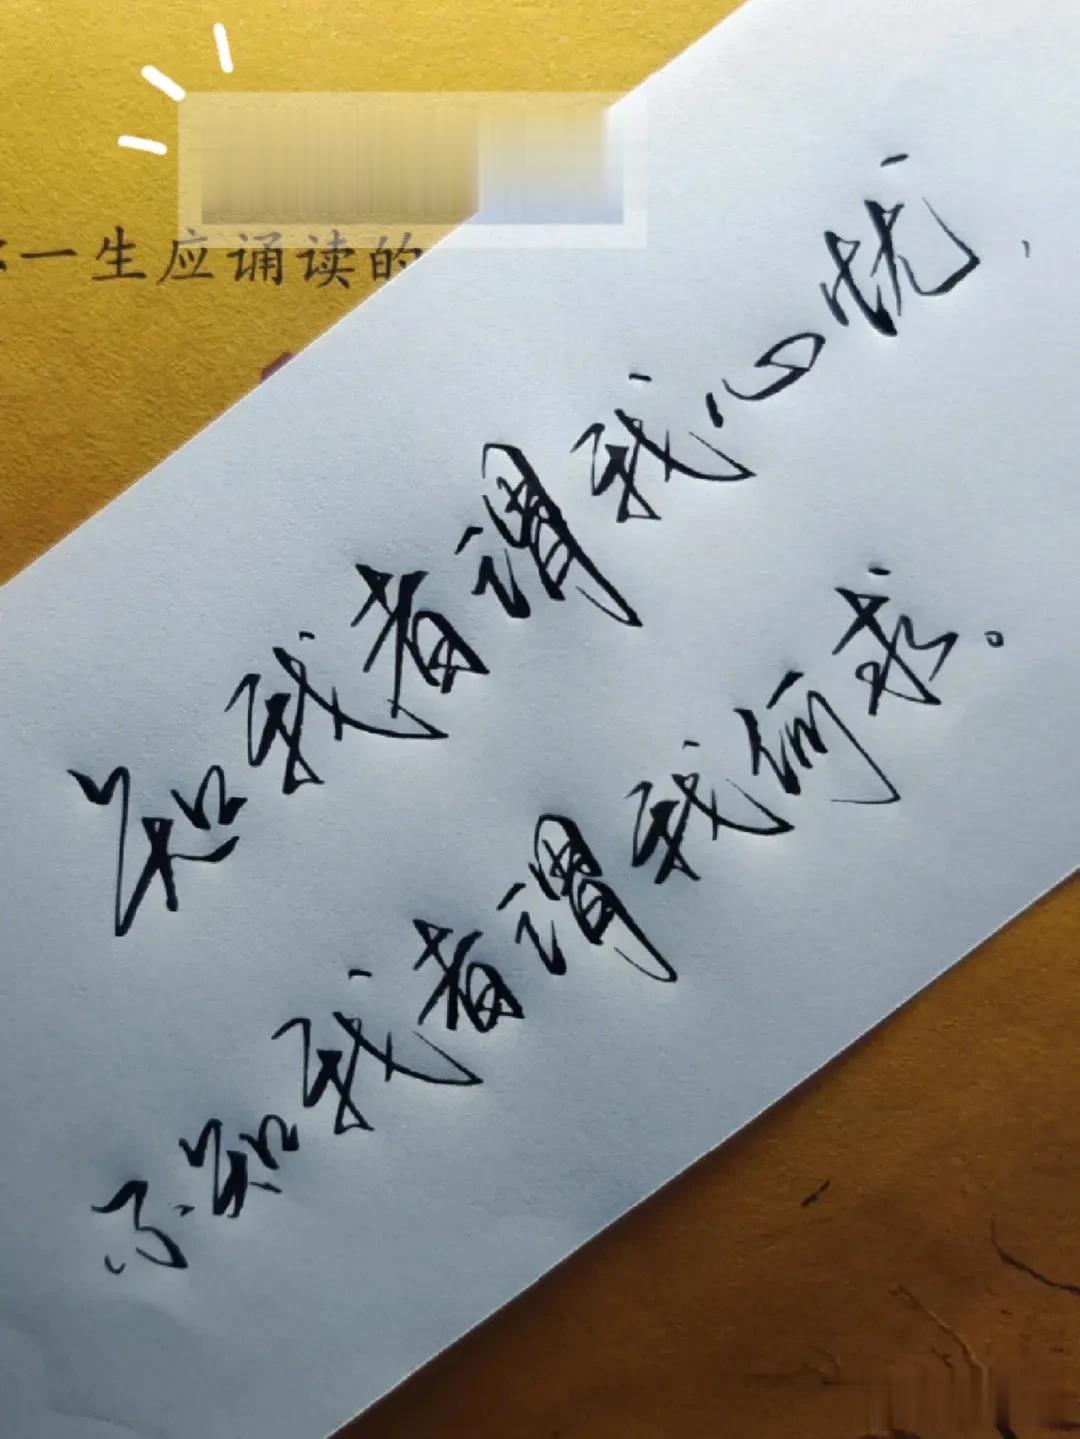 一生应诵读的
知我者谓我心忧,
不知我者谓我何求。